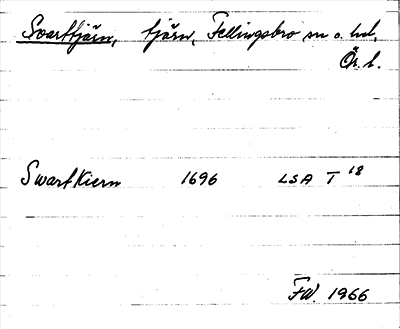 Svarttjärn, tjärn, Fellingsbro sn o. hd,
Ör. l.
SwartKiern 1696 LSA T 18
FW. 1966